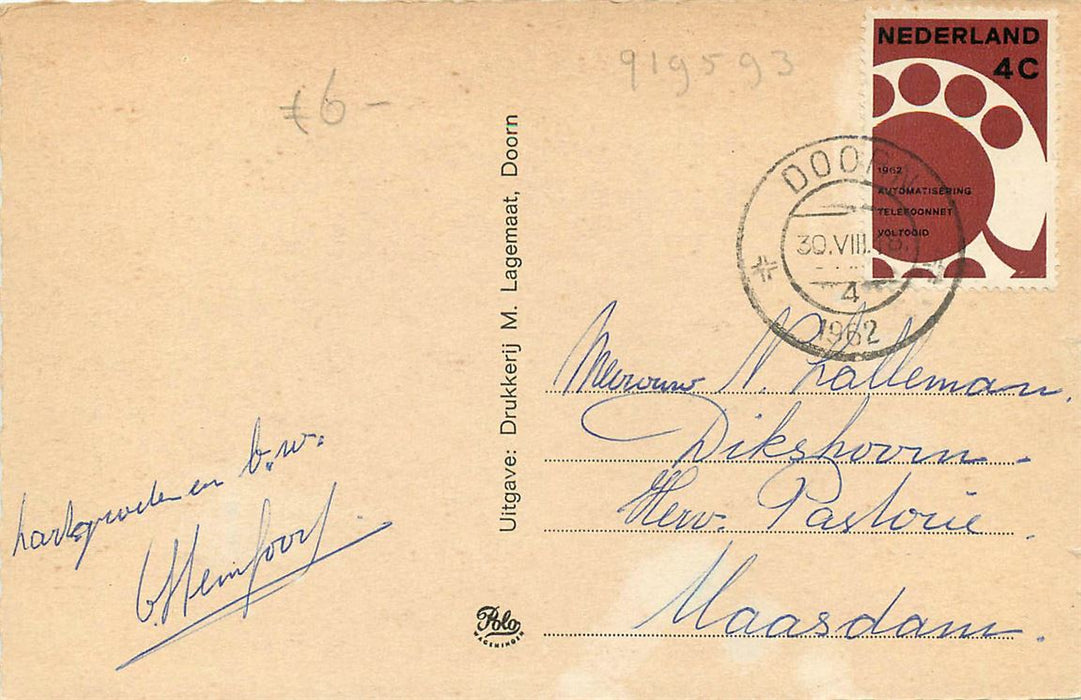 €6-
919593
NEDERLAND
4C
1962
AUTOMATISERING
TELEFOONNET
VOLTOOID
DOORN
30.VIII.
4
1962
Uitgave: Drukkerij M. Lagemaat, Doorn
Mevrouw N. Lalleman.
Dikshoorn.
Herv. Pastorie.
Maasdam.
hartegroeten en b.w.
Polo
WAGENINGEN